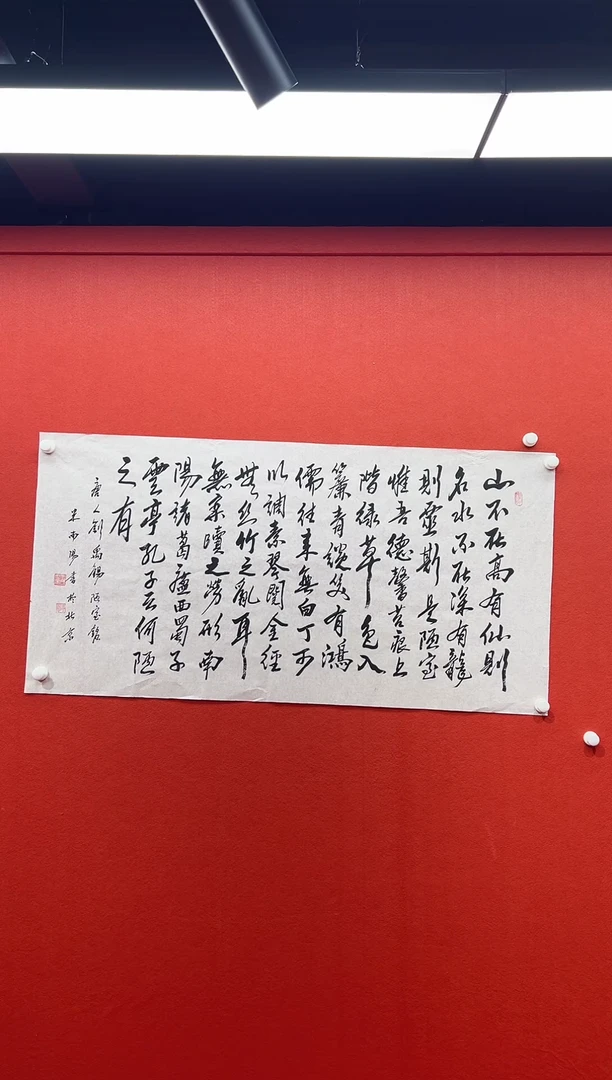 山不在高有仙則
名水不在深有龍
則靈斯是陋室
惟吾德馨苔痕上
階緑草色入
簾青談笑有鴻
儒往來無白丁可
以調素琴閲金經
無絲竹之亂耳
無案牘之勞形南
陽諸葛廬西蜀子
雲亭孔子云何陋
之有
唐人劉禹錫陋室銘
米南陽書於北京